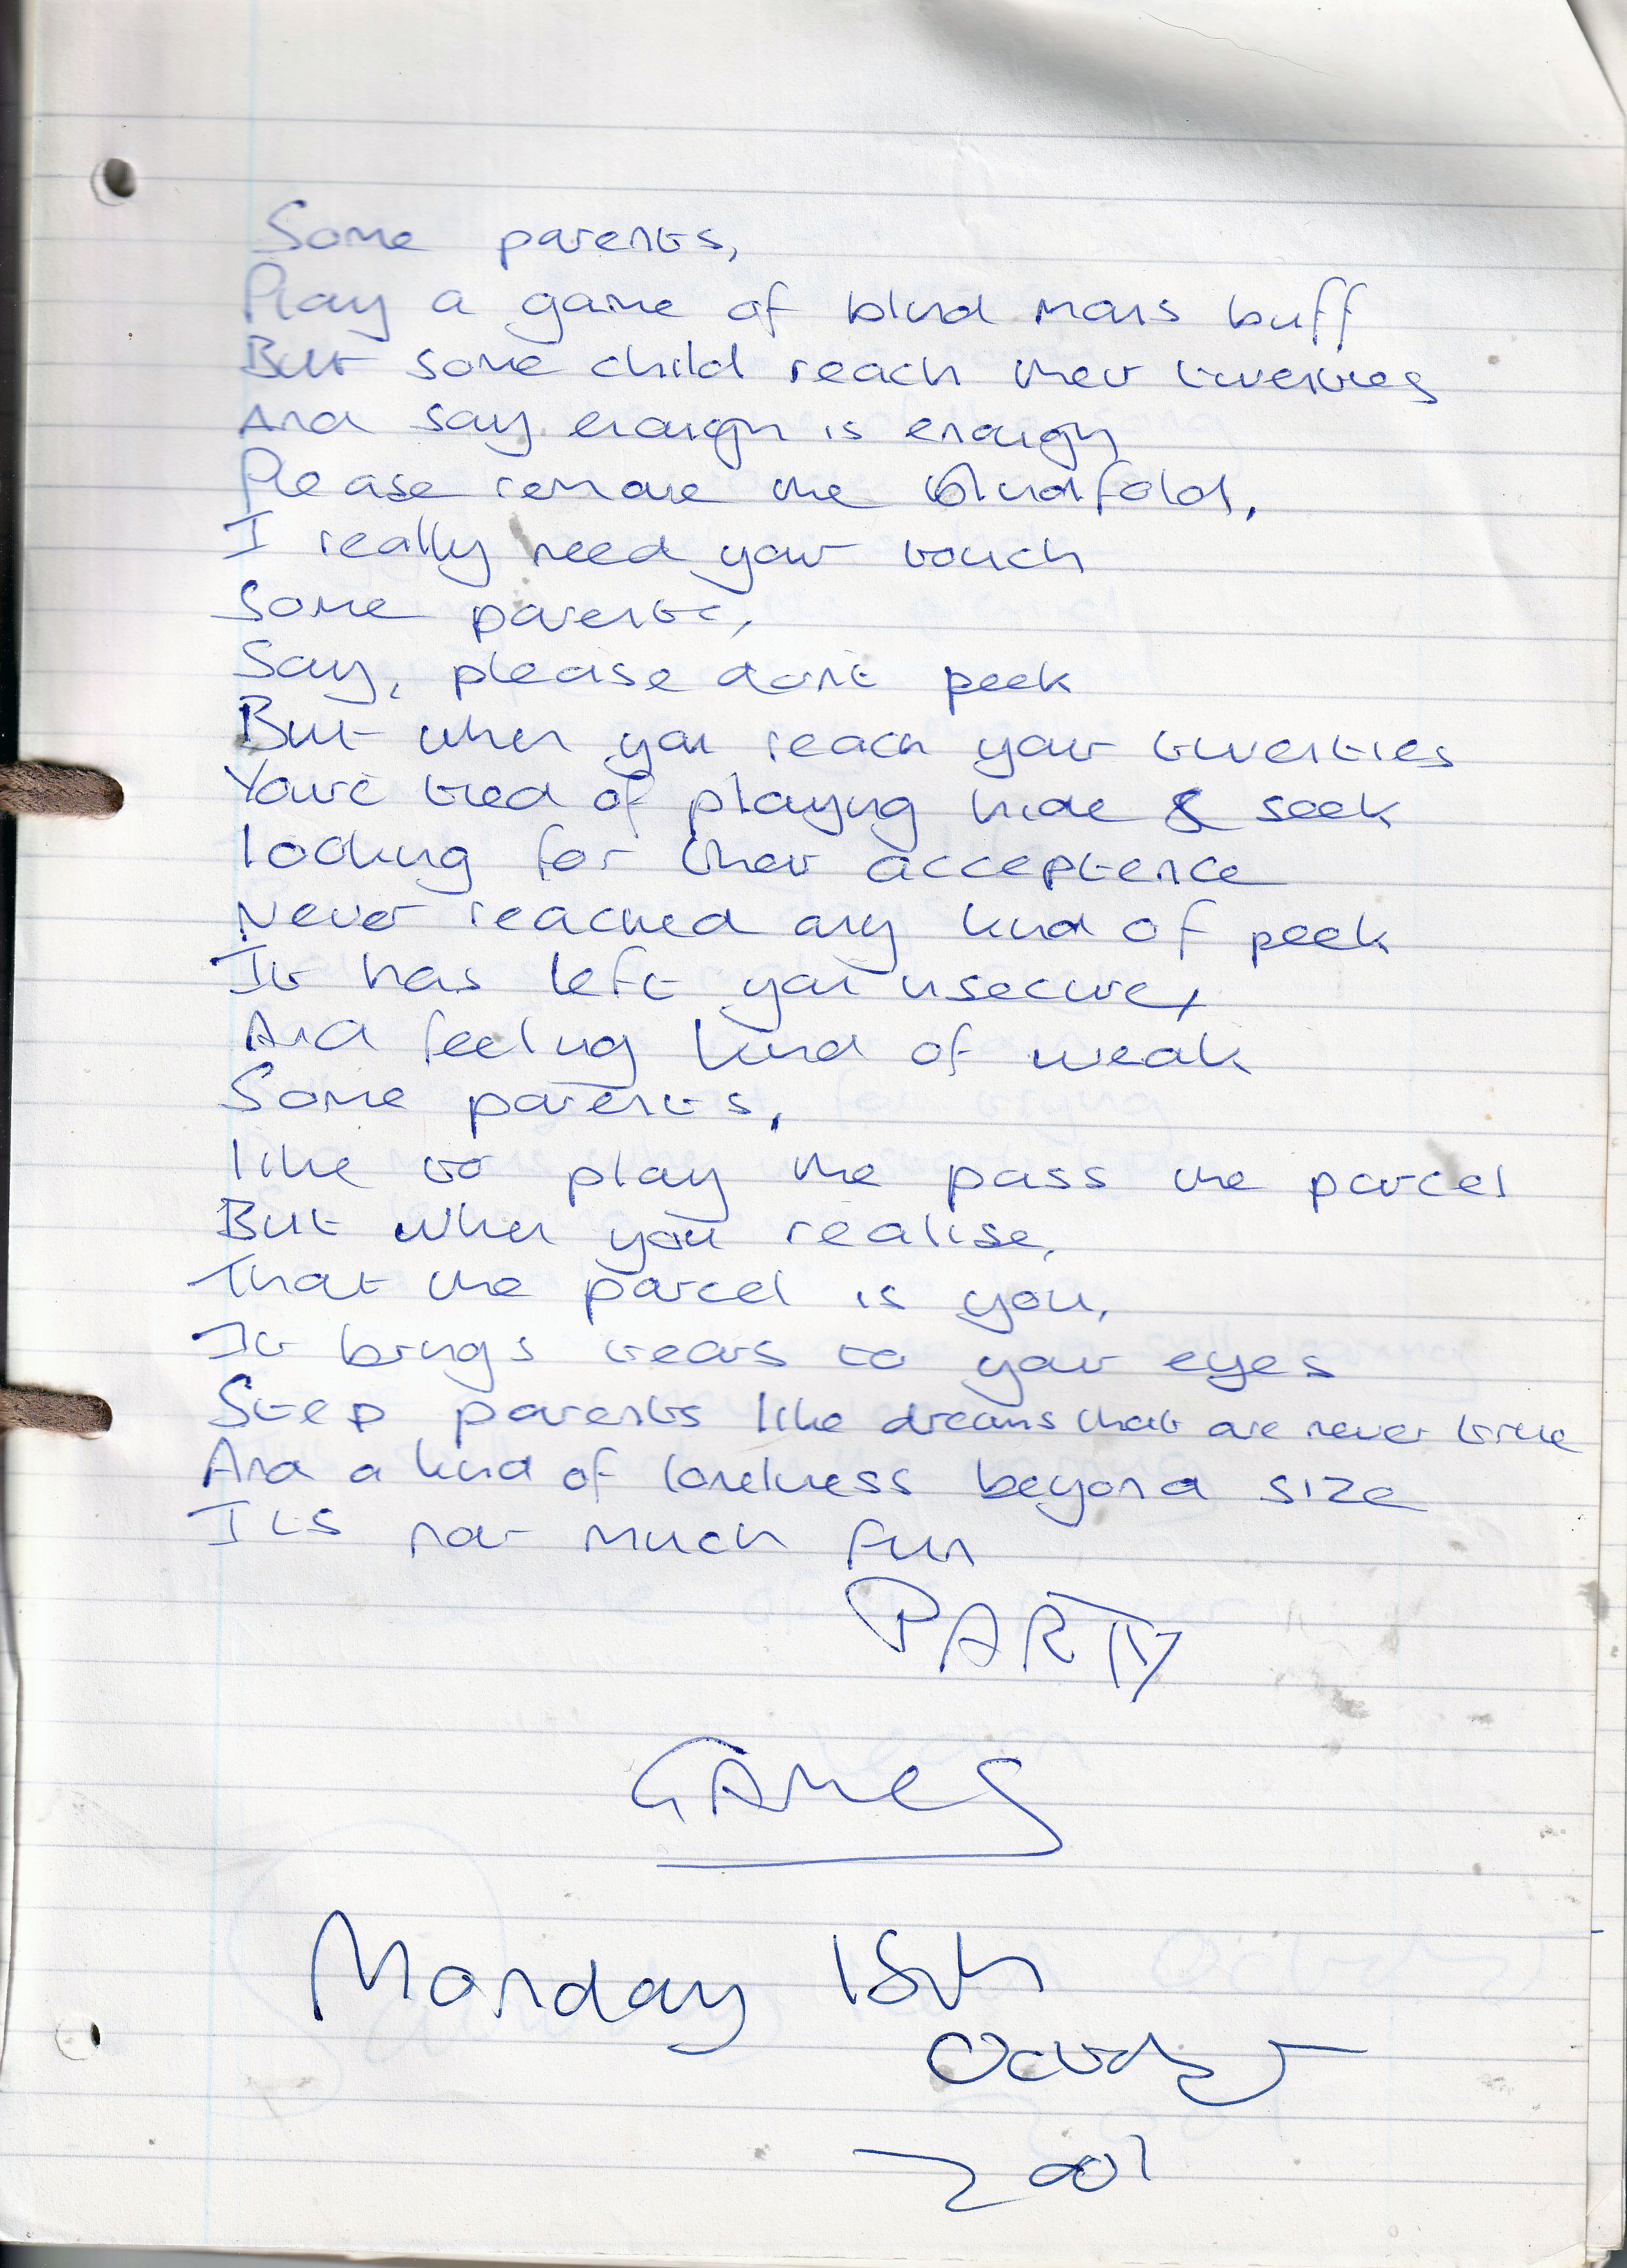 Some parents,
Play a game of blind mans buff
But some child reach their twenties
And say enough is enough
Please remove the blindfold,
I really need your touch
Some parents,
Say, please dont peek
But when you reach your twenties
Youre tired of playing hide & seek
looking for their acceptence
Never reached any kind of peek
It has left you insecure,
And feeling kind of weak
Some parents,
like to play the pass the parcel
But when you realise,
That the parcel is you,
It brings tears to your eyes
Step parents like dreams that are never true
And a kind of loneliness beyond size
Its not much fun
PARTY
GAMES
Monday 15th
October
2001